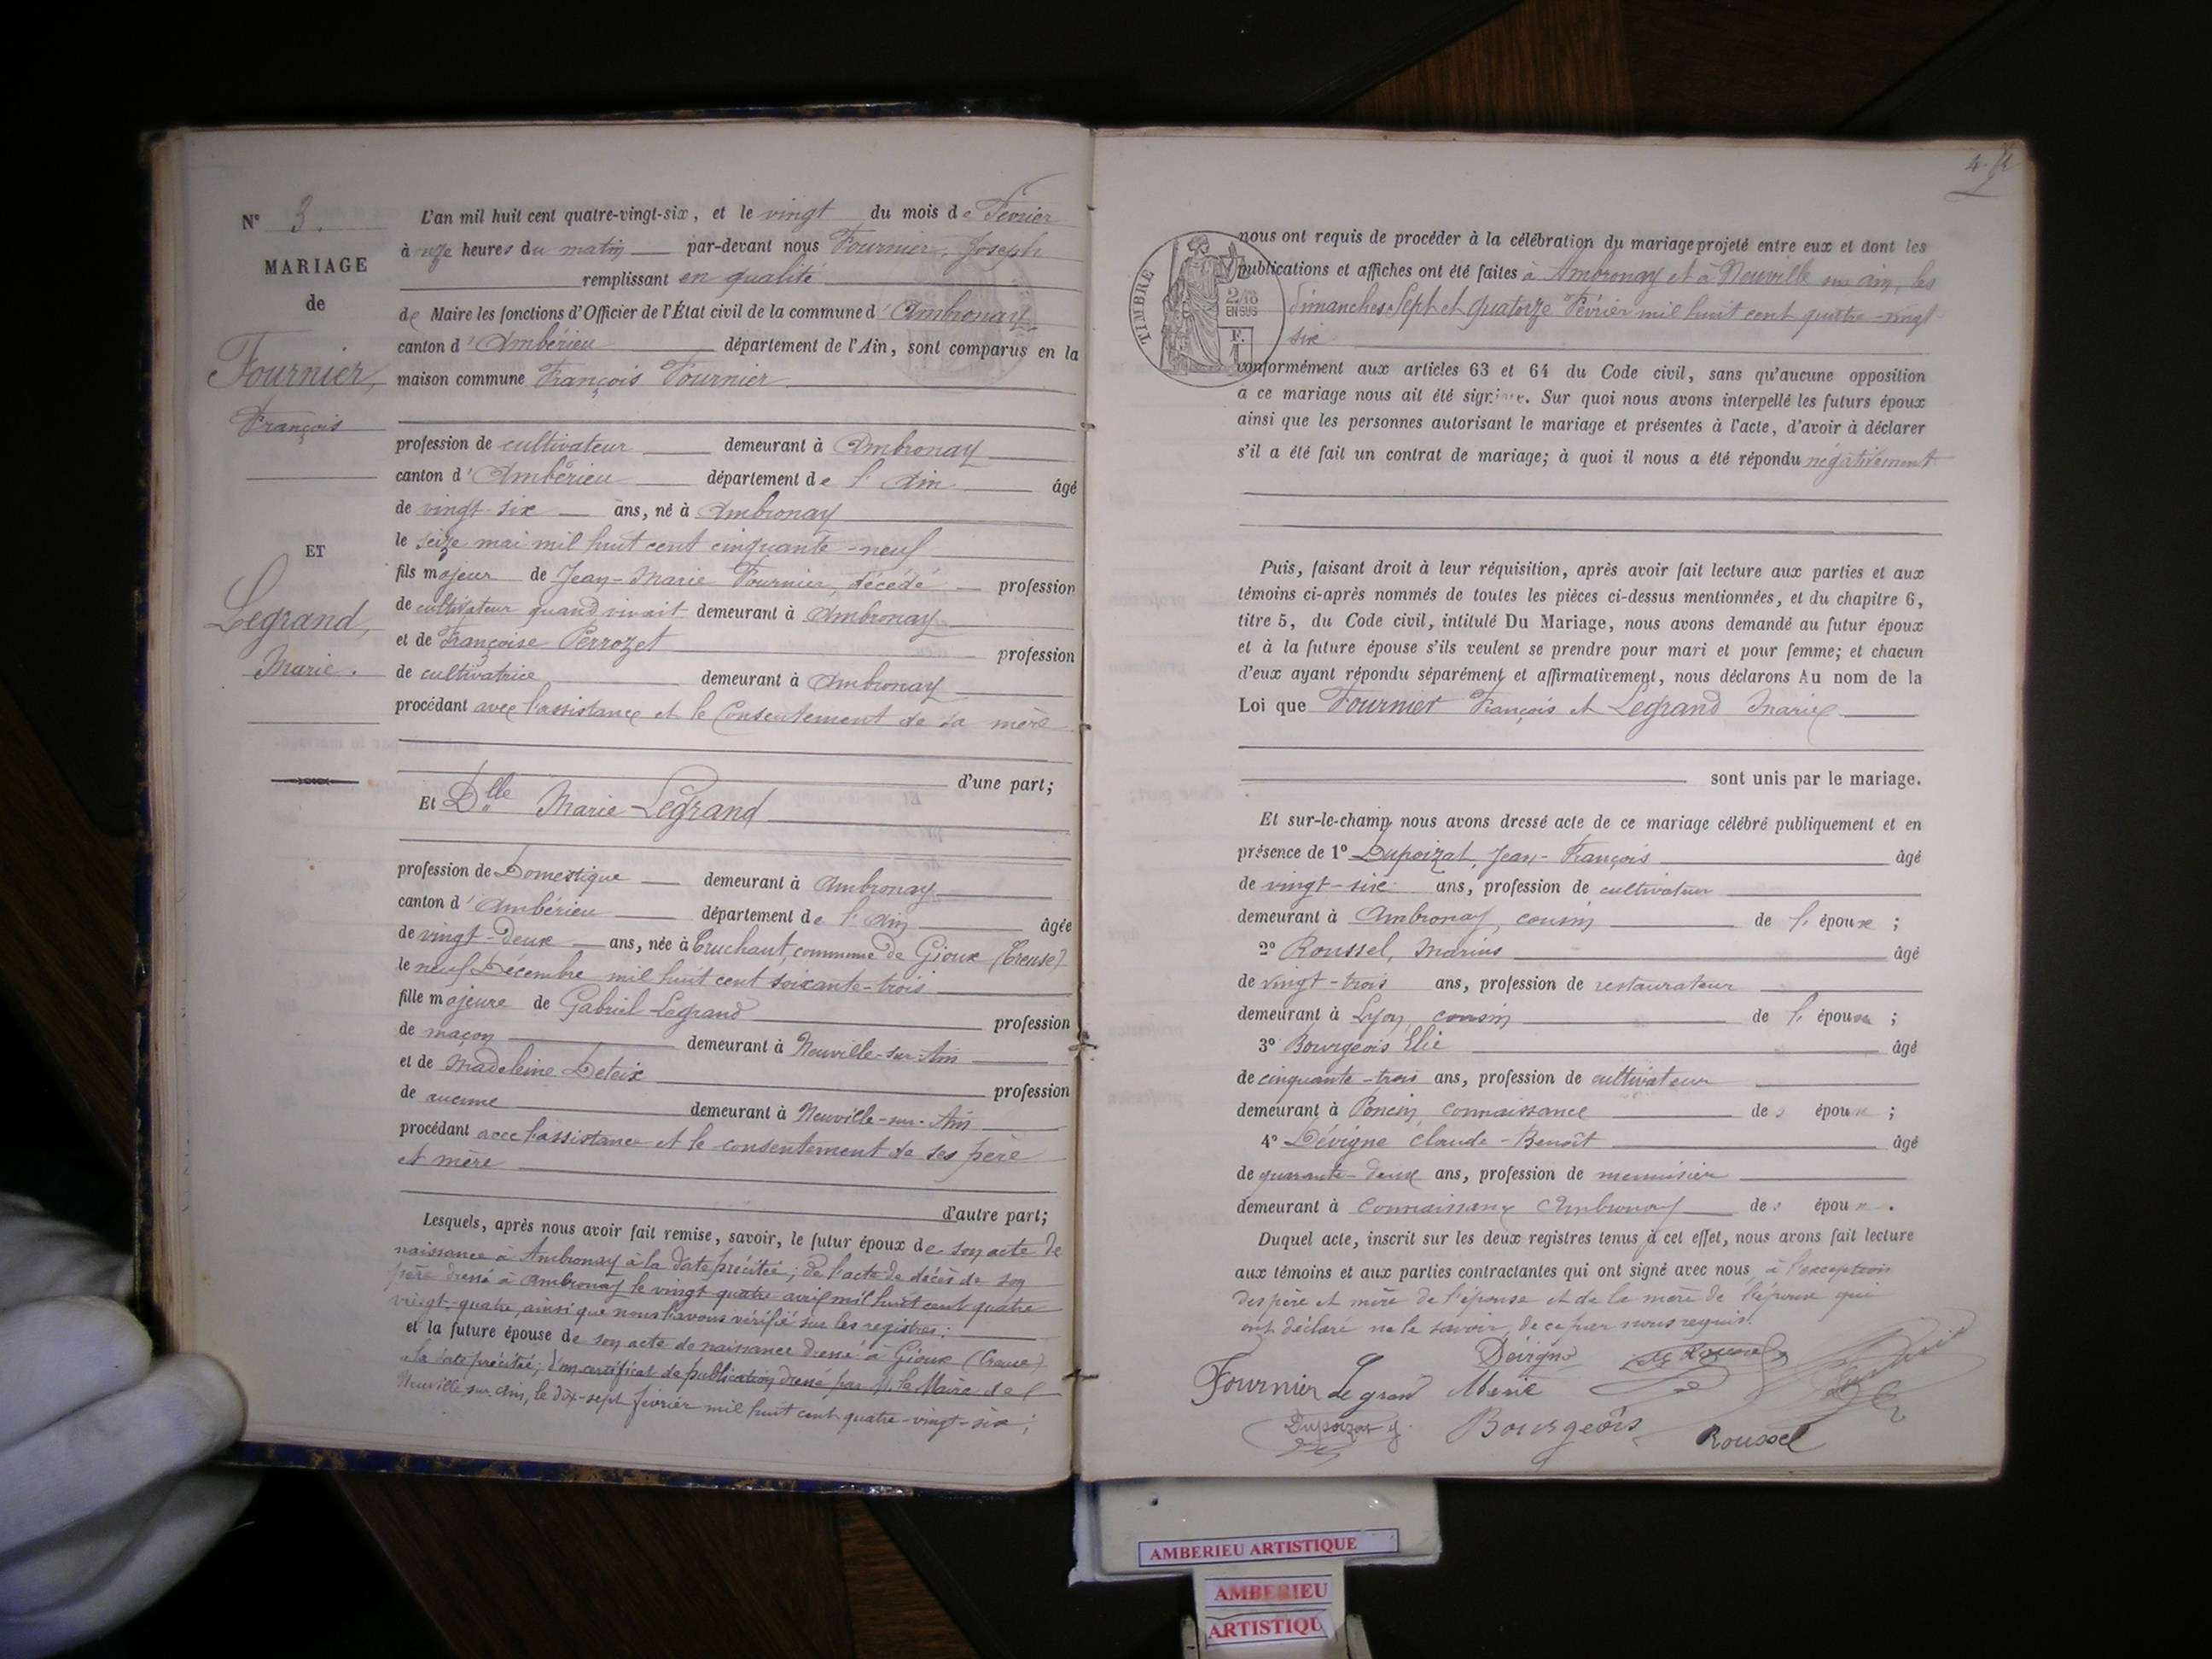 N° 3.
MARIAGE
de
Fournier,
François
ET
Legrand,
Marie.
L'an mil huit cent quatre-vingt-six, et le vingt du mois de Février
à onze heures du matin par-devant nous Fournier, Joseph
remplissant en qualité
de Maire les fonctions d'Officier de l'État civil de la commune d'Ambronay
canton d'Ambérieu département de l'Ain, sont comparus en la
maison commune François Fournier
profession de cultivateur demeurant à Ambronay
canton d'Ambérieu département de l'Ain âgé
de vingt-six ans, né à Ambronay
le seize mai mil huit cent cinquante-neuf
fils majeur de Jean-Marie Fournier, décédé profession
de cultivateur quand vivait demeurant à Ambronay
et de Françoise Perrozet profession
de cultivatrice demeurant à Ambronay
procédant avec l'assistance et le Consentement de sa mère
d'une part;
Et Dlle Marie Legrand
profession de Domestique demeurant à Ambronay
canton d'Ambérieu département de l'Ain âgée
de vingt-deux ans, née à Truchant, commune de Gioux (Creuse)
le neuf Décembre mil huit cent soixante-trois
fille majeure de Gabriel Legrand profession
de maçon demeurant à Neuville-sur-Ain
et de Madeleine Deteix profession
de aucune demeurant à Neuville-sur-Ain
procédant avec l'assistance et le consentement de ses père
et mère
d'autre part;
Lesquels, après nous avoir fait remise, savoir, le futur époux de son acte de
naissance à Ambronay à la date précitée; de l'acte de décès de son
père dressé à Ambronay le vingt quatre avril mil huit cent quatre
vingt-quatre, ainsi que nous l'avons vérifié sur les registres;
et la future épouse de son acte de naissance dressé à Gioux (Creuse)
à la date précitée; d'un certificat de publication dressé par M. le Maire de
Neuville sur Ain, le dix-sept février mil huit cent quatre-vingt-six;
4
TIMBRE
2/10
EN SUS
F.
1
nous ont requis de procéder à la célébration du mariage projeté entre eux et dont les
publications et affiches ont été faites à Ambronay et à Neuville sur ain, les
dimanches Sept et quatorze Février mil huit cent quatre-vingt
six
conformément aux articles 63 et 64 du Code civil, sans qu'aucune opposition
a ce mariage nous ait été signifiée. Sur quoi nous avons interpellé les futurs époux
ainsi que les personnes autorisant le mariage et présentes à l'acte, d'avoir à déclarer
s'il a été fait un contrat de mariage; à quoi il nous a été répondu négativement
Puis, faisant droit à leur réquisition, après avoir fait lecture aux parties et aux
témoins ci-après nommés de toutes les pièces ci-dessus mentionnées, et du chapitre 6,
titre 5, du Code civil, intitulé Du Mariage, nous avons demandé au futur époux
et à la future épouse s'ils veulent se prendre pour mari et pour femme; et chacun
d'eux ayant répondu séparément et affirmativement, nous déclarons Au nom de la
Loi que Fournier François et Legrand Marie
sont unis par le mariage.
Et sur-le-champ nous avons dressé acte de ce mariage célébré publiquement et en
présence de 1° Dupoizat, Jean-François âgé
de vingt-six ans, profession de cultivateur
demeurant à Ambronay, cousin de l'époux;
2° Roussel, Marius âgé
de vingt-trois ans, profession de restaurateur
demeurant à Lyon, cousin de l'époux;
3° Bourgeois Elie âgé
de cinquante-trois ans, profession de cultivateur
demeurant à Poncin connaissance des époux;
4° Dévigne Claude-Benoît âgé
de quarante-deux ans, profession de menuisier
demeurant à connaissance Ambronay des époux.
Duquel acte, inscrit sur les deux registres tenus à cet effet, nous avons fait lecture
aux témoins et aux parties contractantes qui ont signé avec nous à l'exception
des père et mère de l'épouse et de la mère de l'époux qui
ont déclaré ne le savoir, de ce par nous requis.
Dévigne
Fournier Legrand Marie
Dupoizat j. Bourgeois Roussel
AMBERIEU ARTISTIQUE
AMBERIEU
ARTISTIQU